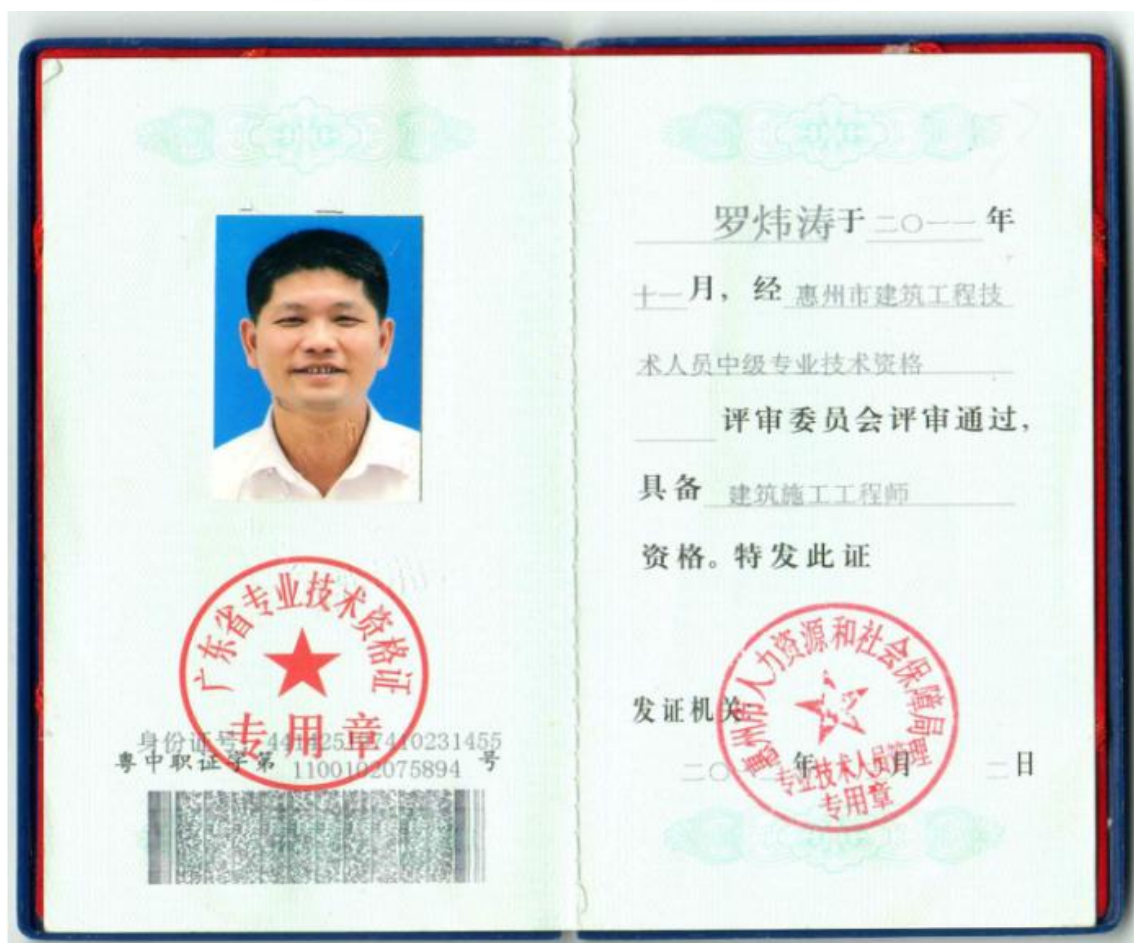 广东省专业技术资格证
专用章
身份证号
粤中职证字第 1100102075894 号
罗炜涛于二〇一一年
十一月，经 惠州市建筑工程技
术人员中级专业技术资格
评审委员会评审通过，
具备 建筑施工工程师
资格。特发此证
发证机关
惠州市人力资源和社会保障局
专业技术人员管理
专用章
年 月 二日